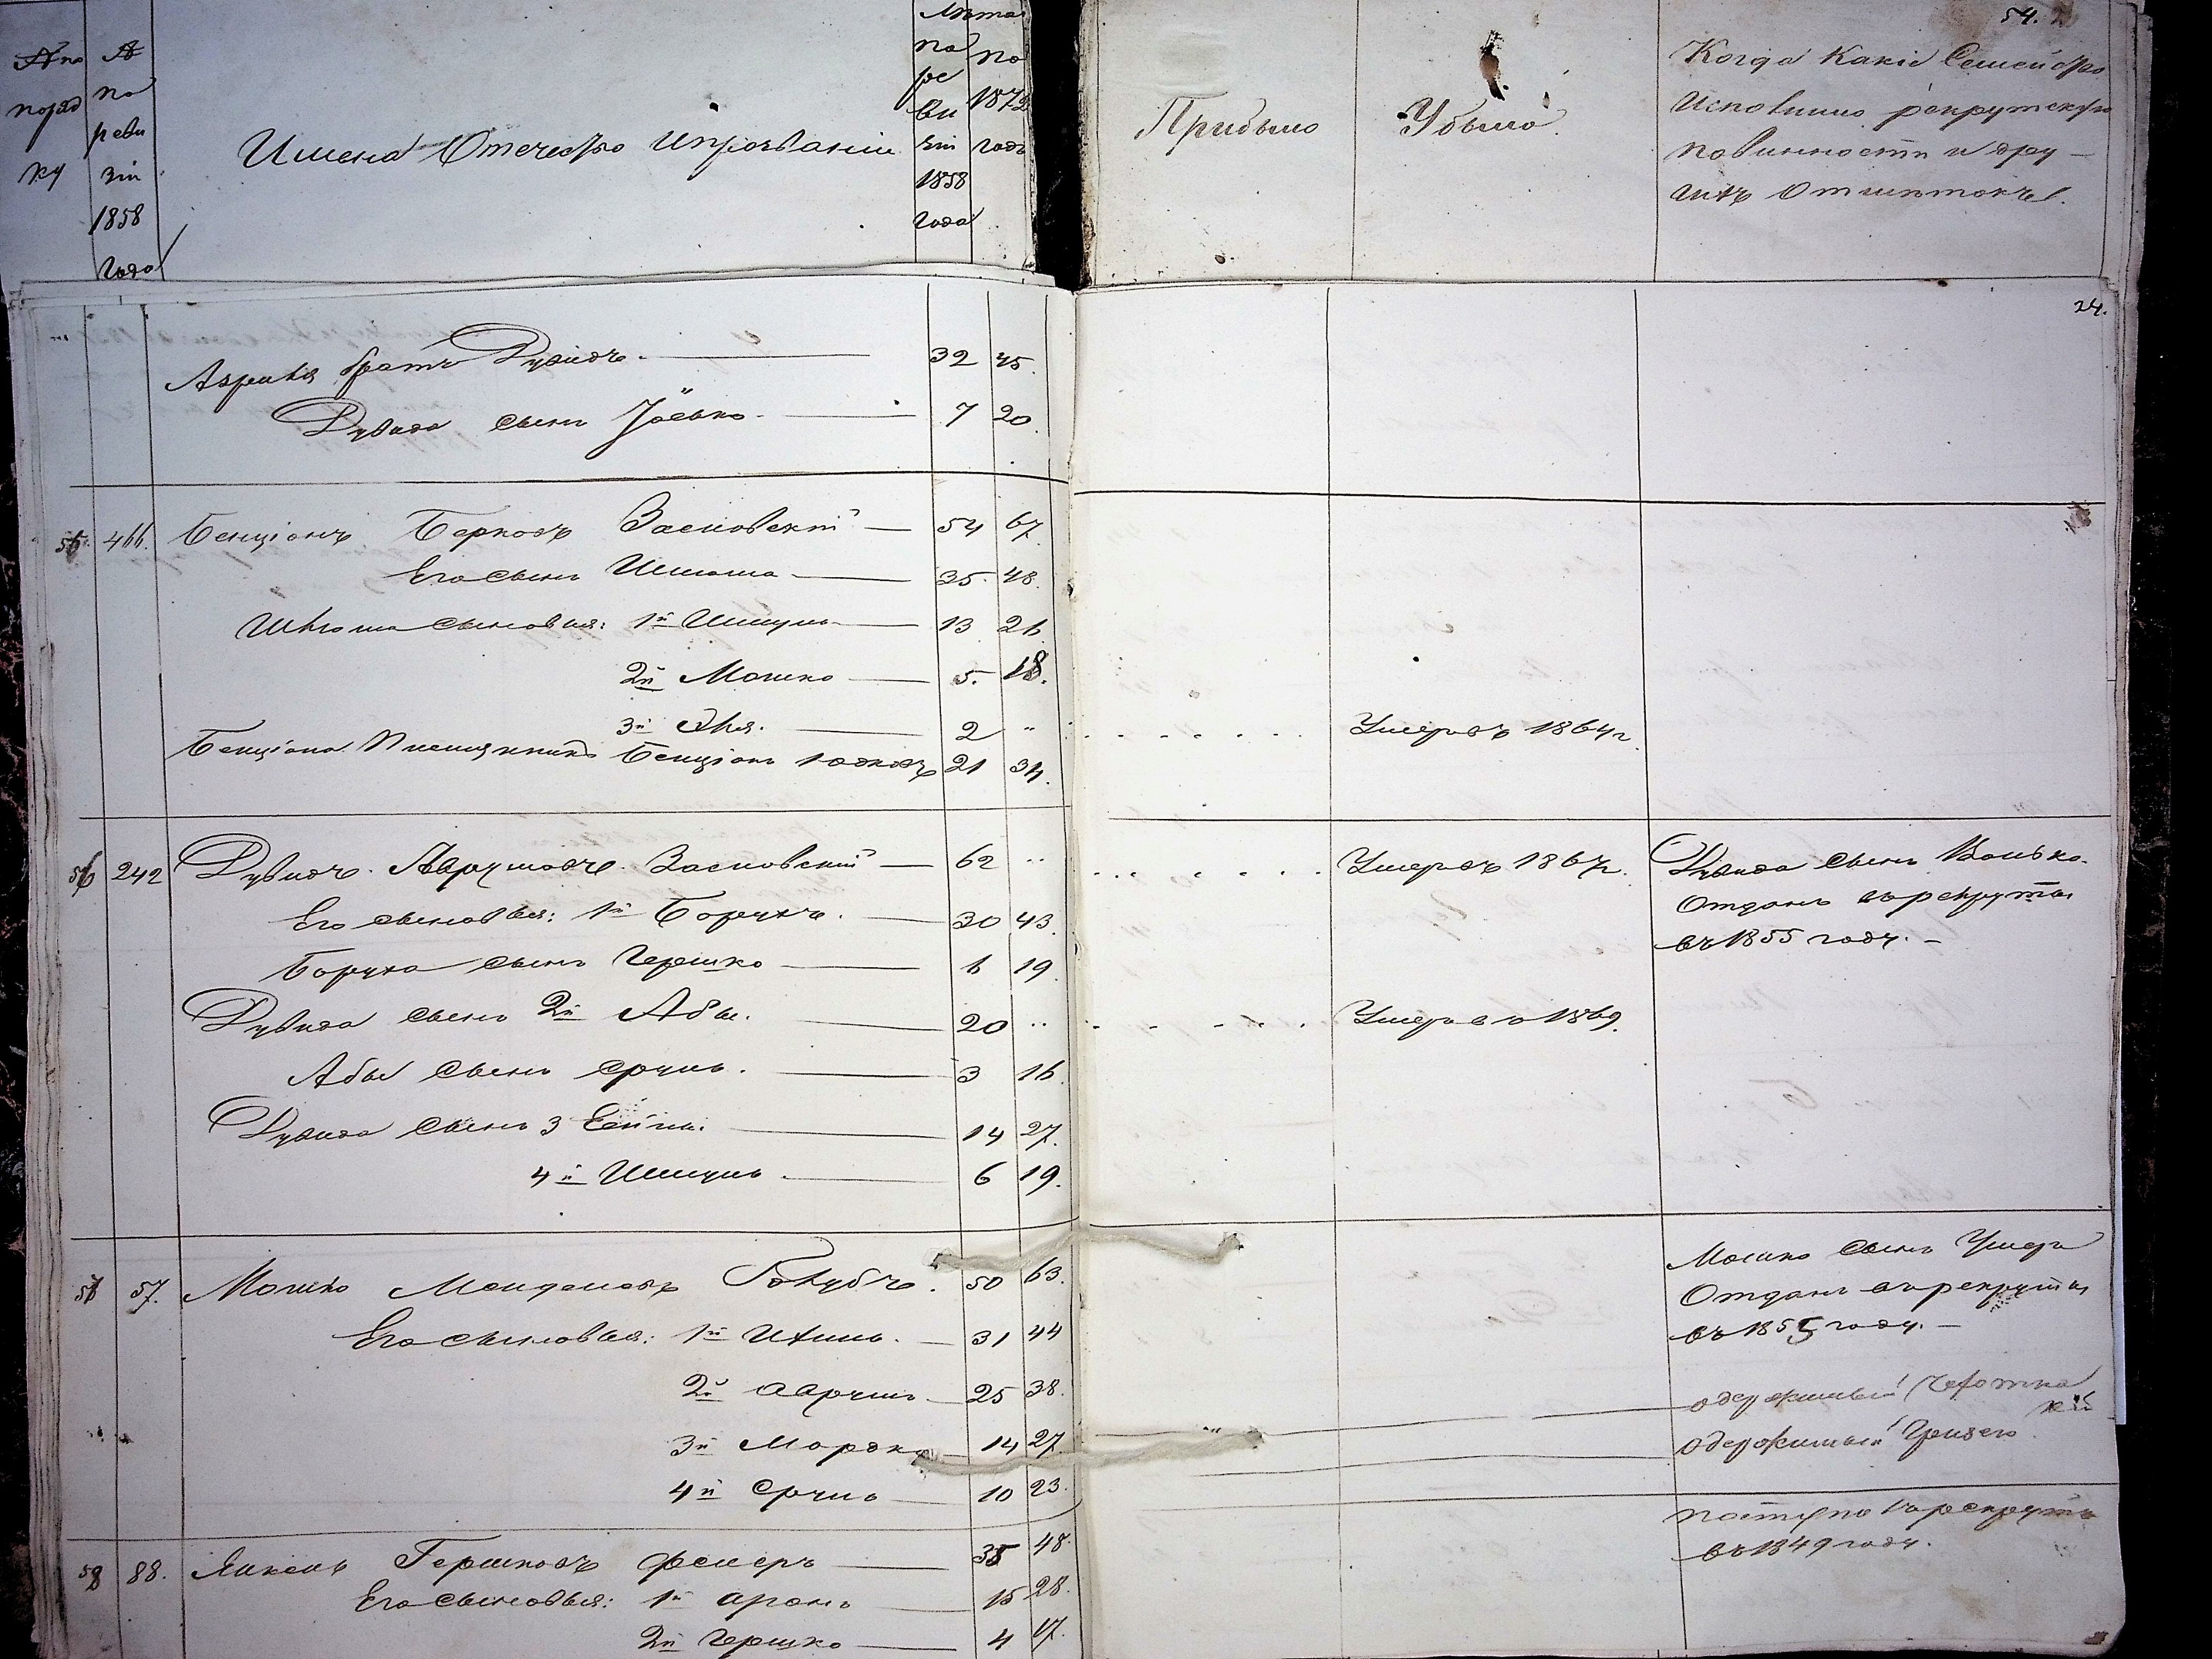 № по поряд ку
№ по реви зіи 1858 года
Имена Отечество и прозваніи
Лѣта
по ре ви зіи 1858 года
по 1872 годъ
Прибыло
Убыло.
54.
Когда какіе Семейство
Исполнило рекрутскую
повинности и дру-
гихъ Отмѣтокъ.
24.
братъ Дувидъ. 32 45.
Дувида сынъ Іосько. 7 20.
55. 466. Бенціонъ Берковъ Засновскій 54 67.
Его сынъ Шлёма 35. 48.
Шлома сыновья: 1й Шмуль 13 26
2й Мошко 5. 18.
3й Эля. 2 " Умеръ въ 1864 г.
Бенціона Племянникъ Бенціонъ Юдковъ 21 34.
56 242 Дувидъ. Аврумовъ. Засновскій 62 " Умеръ въ 1867г. Дувида сынъ
Отданъ въ рекруты
въ 1855 году. -
Его сыновья: 1й Борухъ. 30 43.
Боруха сынъ Гершко 6 19
Дувида сынъ 2й Абы. 20 " Умеръ въ 1869.
Абы сынъ Сруль. 3 16
Дувида сынъ 3 14 27.
4й Шмуль 6 19.
57 57. Мошко Менделевъ Голубъ. 50 63.
Мошко сынъ
Отданъ въ рекруты
въ 1855 году. -
Его сыновья: 1й Ицикъ. 31 44
2й Аврумъ 25 38.
одержимый
3й Мордко 14 27.
одержимый
4й Сруль 10 23.
58 88. Янкель Гершковъ Фельеръ 35 48.
рекруты
въ 1849 году.
Его сыновья: 1й Аронъ 15 28.
2й Гершко 4 17.